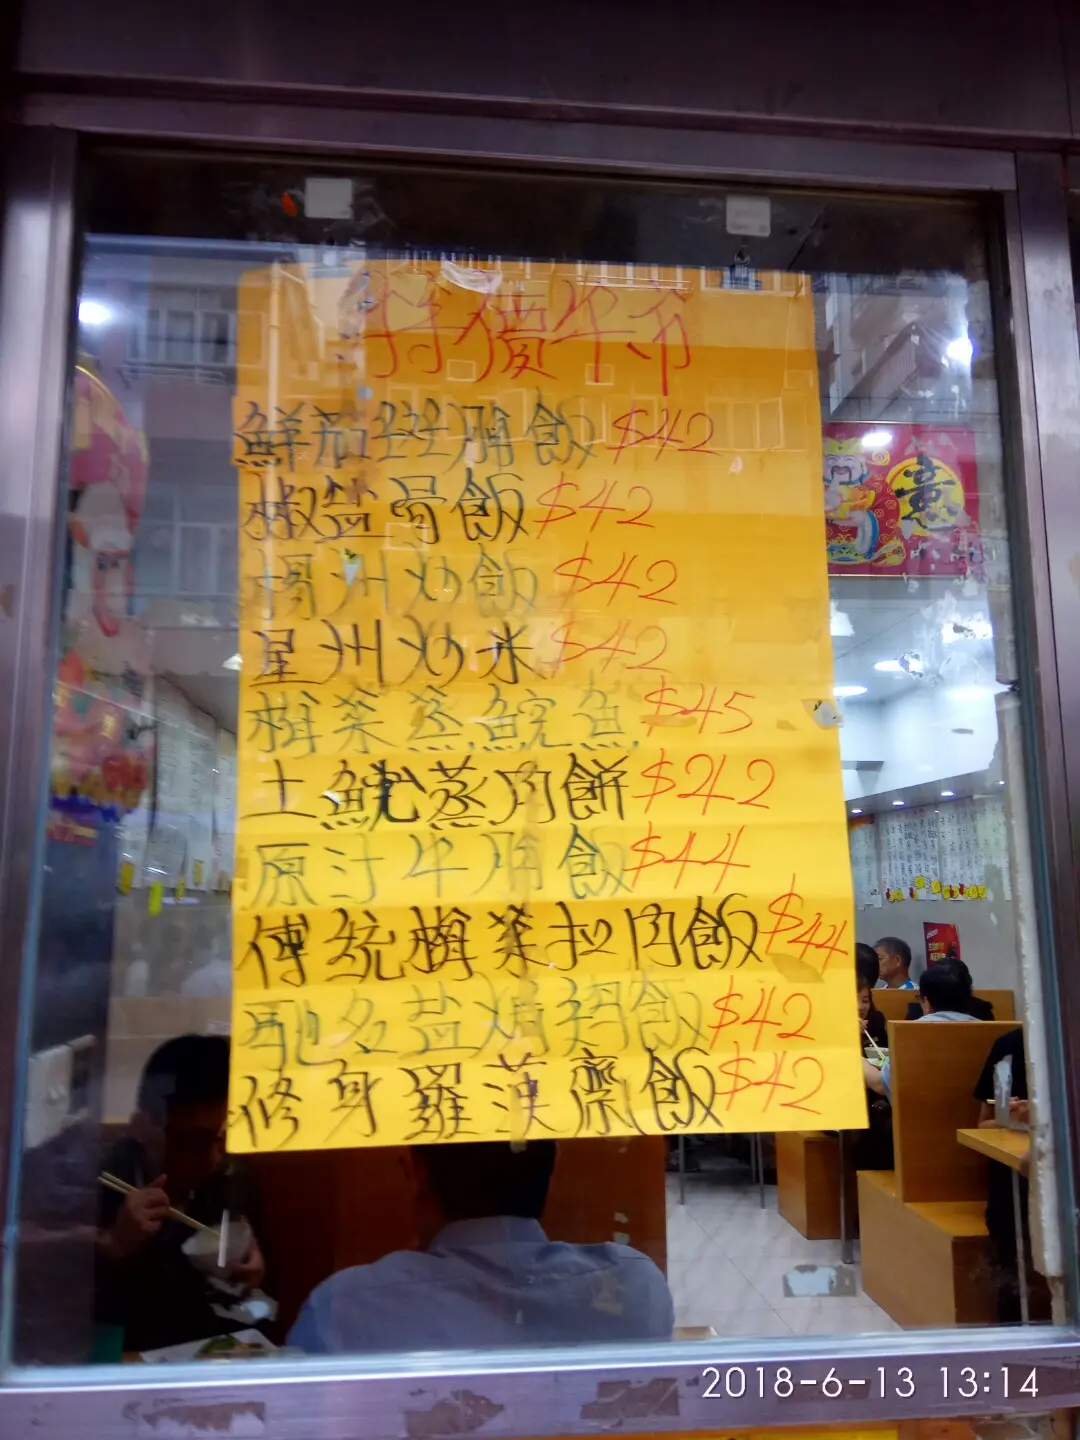 特價午市
鮮茄牛𦟌飯 $42
椒盐骨飯 $42
揚州炒飯 $42
星州炒米 $42
梅菜蒸鯇魚 $45
土魷蒸肉餅 $42
原汁牛𦟌飯 $44
傳統梅菜扣肉飯 $44
馳名盐焗鸡飯 $42
修身羅漢齋飯 $42
意
2018-6-13 13:14